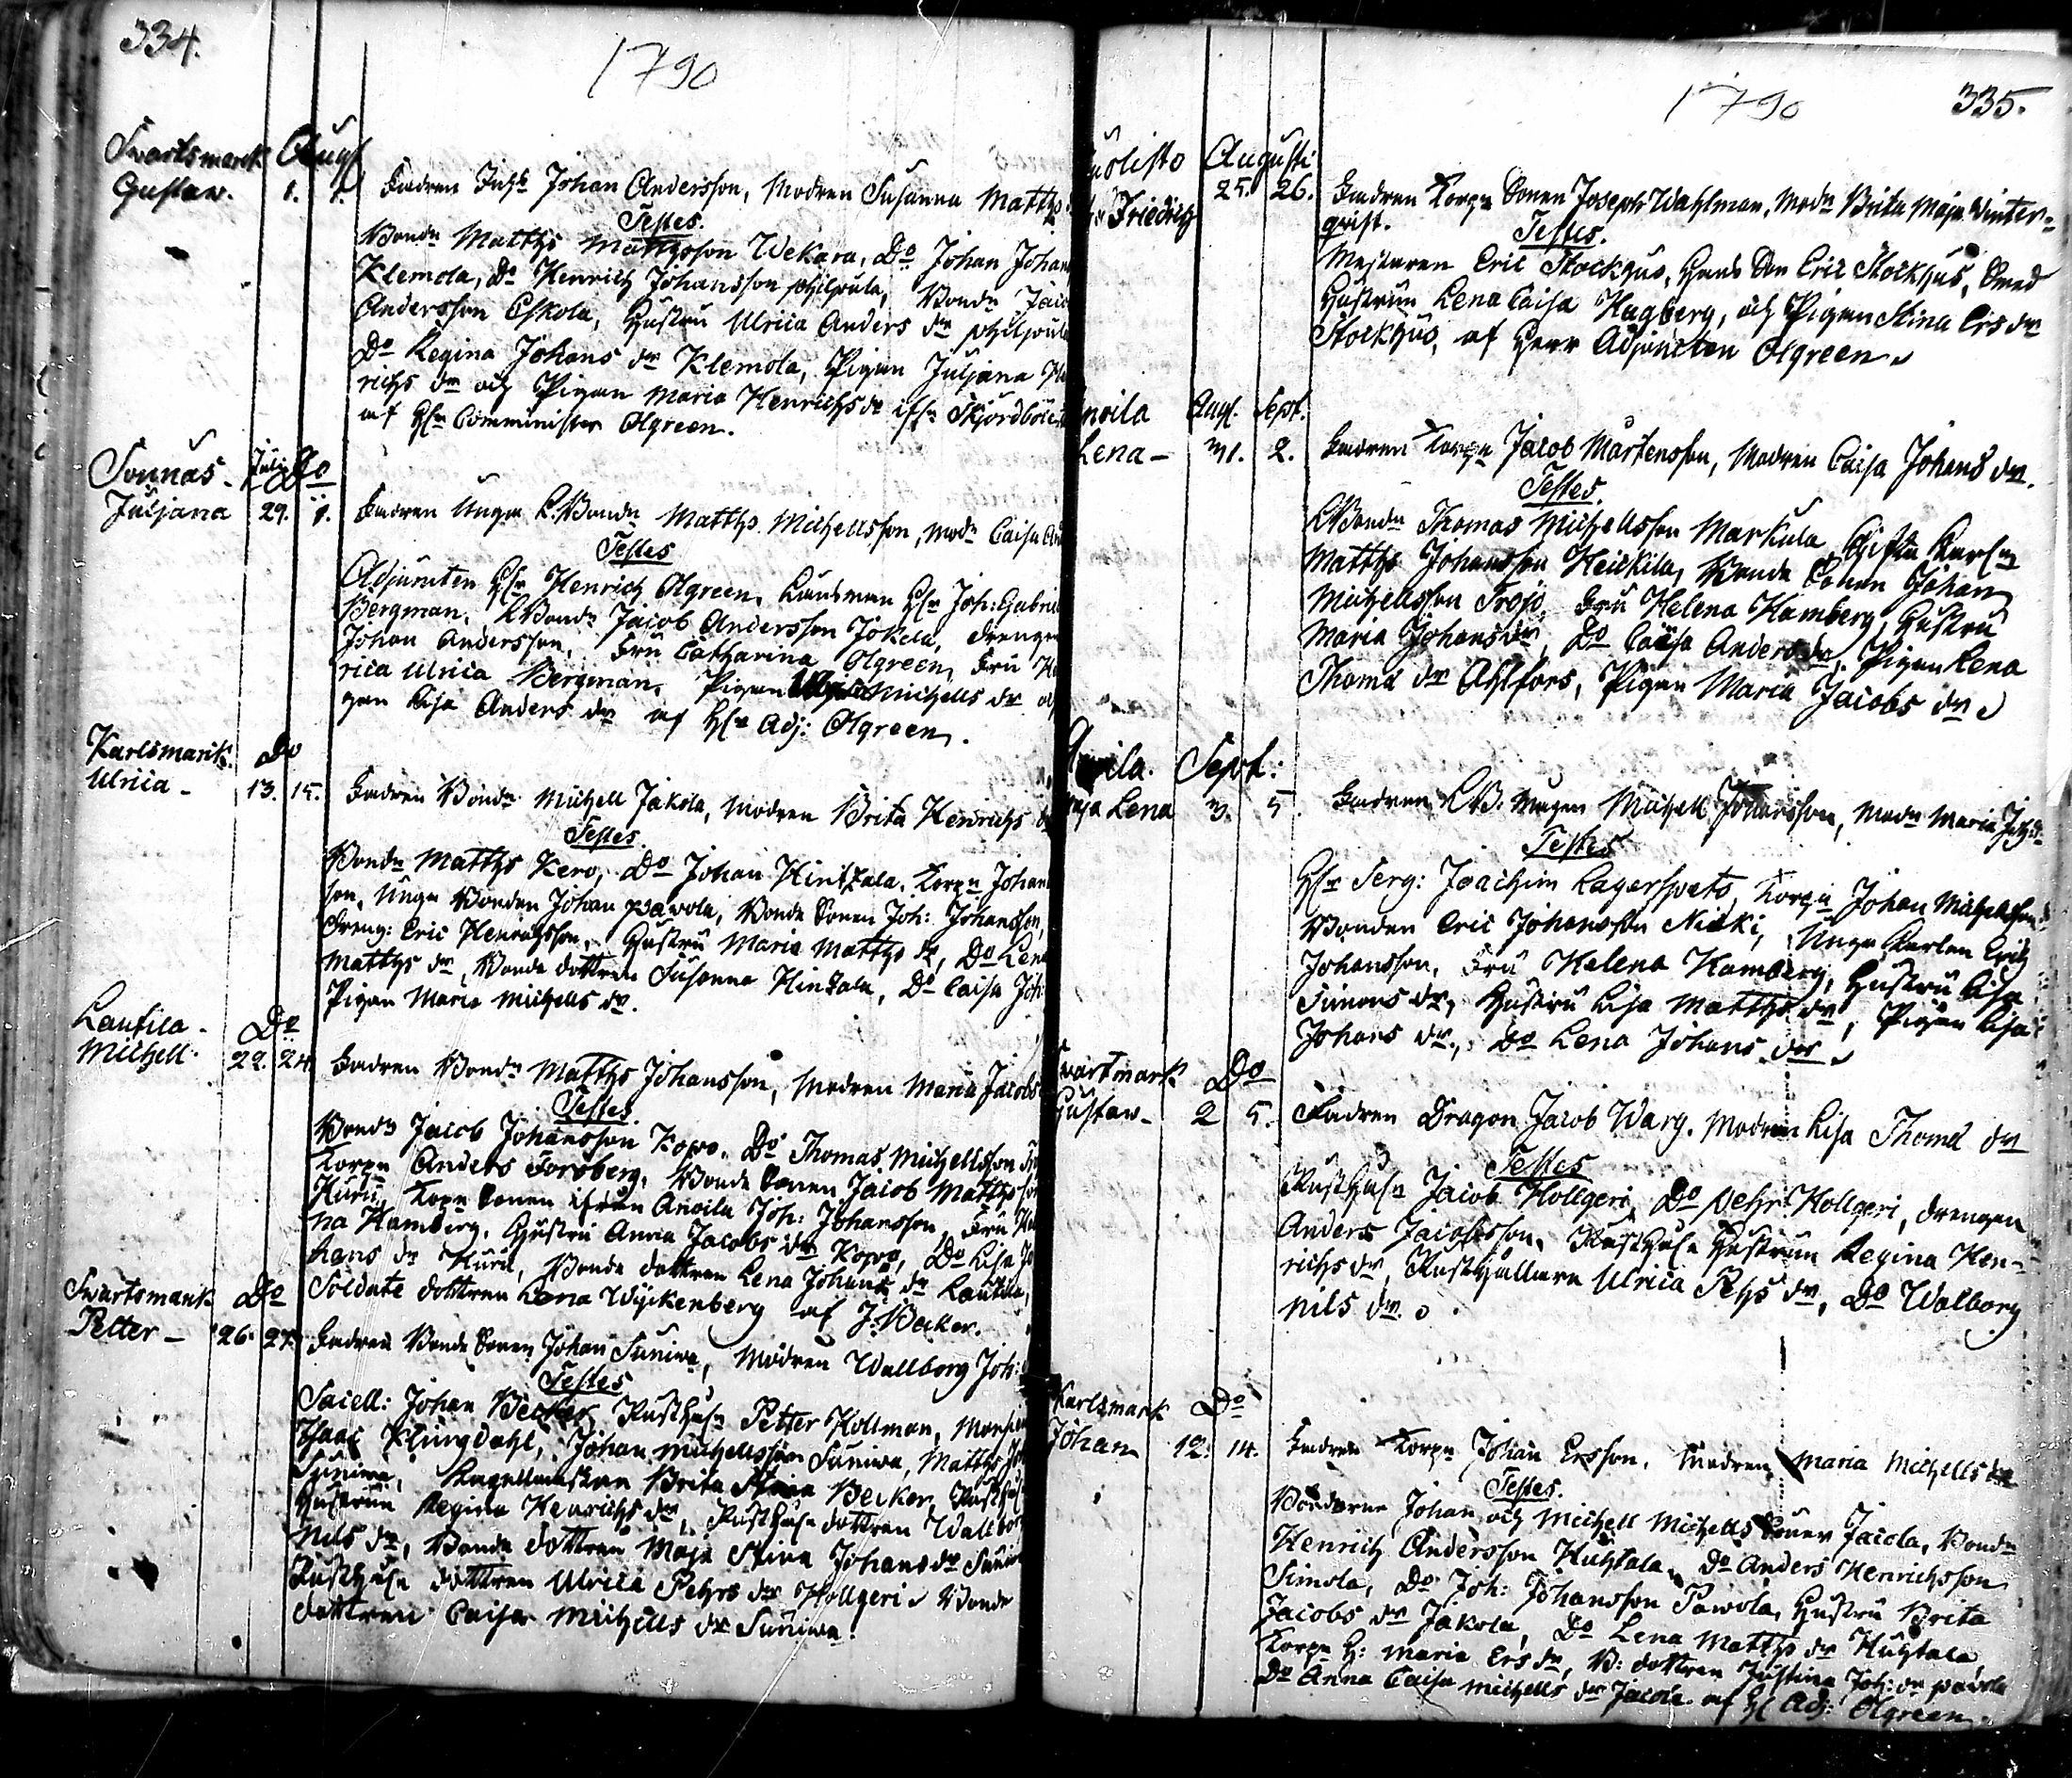 334.
1790
Swartsmark Aug:
Gustaw. 1. 1. Fadren Inh: Johan Andersson, Modren Susanna Matths
Testes.
Bondn Matths Matthsson Wekara, Do Johan Johan
Klemola, Do Henrich Johansson philpula, Bondn Jaco
Andersson Eskola, Hustru Ulrica Anders dr philpula
Do Regina Johans dr Klemola, Pigan Juljana He
richs dr och Pigan Maria Henrichs dr ifrn Skjordböle
af Hr Comminister Olgreen.
Sonnäs - Julii Do
Juljana 29. 1. Fadren Unga L. Bondn Matths Michellsson, Modn Caisa And
Testes
Adjuncten Hr Henrich Olgreen, Länsman Hr Joh: Gabriel
Bergman, LBondn Jacob Andersson Jokela, drengen
Johan Andersson, Fru Catharina Olgreen, Fru He
rica Ulrica Bergman, Pigan Michells dr och
gan Lisa Anders dr af Hr Adj: Olgreen.
Karlsmark. Do
Ulrica - 13. 15. Fadren Bondn Michell Jakola, Modren Brita Henrichs dr
Testes
Bondn Matths Kero, Do Johan Hintzala, Torpn Johan
son, Unga Bonden Johan pavola, Bonde Sonen Joh: Johansson,
dreng: Eric Henrichsson, Hustru Maria Matths dr, Do Lena
Matths dr, Bonde dottren Susanna Hintzala, Do Caisa Joh:
Pigan Maria Michells dr.
Lautila - Do
Michell. 22. 24. Fadren Bondn Matths Johansson, Modren Maria Jacobs
Testes.
Bondn Jacob Johansson Kopo, Do Thomas Michellsson
Torpn Anders Forsberg, Bonde Sonen Jacob Matthsson
Huru, Torpn Sonen ifrån Anvila Joh: Johansson, Fru He
na Hamberg, Hustru Anna Jacobs dr Kopo, Do Lisa Jo
hans dr Huru, Bonde dottren Lena Johans dr Lautila,
Soldate dottren Lena Wijckenberg af J: Becker.
Swartsmark Do
Petter - 26. 27. Fadren Bonde Sonen Johan Suniwa, Modren Wallborg Joh:
Testes
Sacell: Johan Becker, Rusthn Petter Hollman, Monsieur
Isaac Klingdahl, Johan Michellsson Suniwa, Matths Joh
Suniwa, Brita Stina Becker, Rusth
Hustrun Regina Henrichs dr, Rusth dottren Wallbor
Nils dr, Bonde dottren Maja Stina Johans dr Suniwa
Rusth dottren Ulrica Pehrs dr Hollgeri, Bonde
dottren Caisa Michells dr Suniwa.
1790
335.
Augusti
Friedrich 25. 26. Fadren Torpn Sonen Joseph Wahlman, Modn Brita Maja Winter-
qvist.
Testes.
Mästaren Eric Stockhus, Hans Son Eric Stockhus, Smed
Hustrun Lena Caisa Hagberg, och Pigan Stina Ers dr
Stockhus, af Herr Adjuncten Olgreen
nvila Aug. Sept.
Lena - 31. 2. Fadren Torpn Jacob Mårtensson, Modren Caisa Johans dr.
Testes.
LBondn Thomas Michellsson Markula, Gifta Karlen
Matths Johansson Heickila, Bonde Sonen Johan
Michellsson Frojo, Fru Helena Hamberg, Hustru
Maria Johans dr, Do Caisa Anders dr, Pigan Lena
Thoma dr Ahlfors, Pigan Maria Jacobs dr
nvila. Sept:
aja Lena 3. 5. Fadren LB: Mågen Michell Johansson, Modn Maria Joh:
Testes
Hr Serg: Joachim Lagerspets, Torpn Johan Michellsson
Bonden Eric Johansson Nicki, Unga Karlen Erich
Johansson, Fru Helena Hamberg, Hustru Lisa
Simons dr, Hustru Lisa Matths dr, Pigan Lisa
Johans dr, Do Lena Johans dr
wartmark Do
Gustaw - 2 5. Fadren Dragon Jacob Warg. Modren Lisa Thoma dr
Testes
Rusthn Jacob Hollgeri, Do Pehr Hollgeri, drengen
Anders Jacobsson, Rusth Hustrun Regina Hen-
richs dr, Rusthållaren Ulrica Pehrs dr, Do Walborg
Nils dr.
Karlsmark Do
Johan 12. 14. Fadren Torpn Johan Ersson, Modren Maria Michells dr
Testes.
Bönderne Johan och Michell Michells Söner Jacola, Bondn
Henrich Andersson Huhtala, Do Anders Henrichsson
Simola, Do Joh: Johansson Pawola, Hustru Brita
Jacobs dr Jakola, Do Lena Matths dr Huhtala
Torpn H: Maria Ers dr, B: dottren Justina Joh: dr pavola
Do Anna Caisa Michells dr Jacola af H Adj: Olgreen.